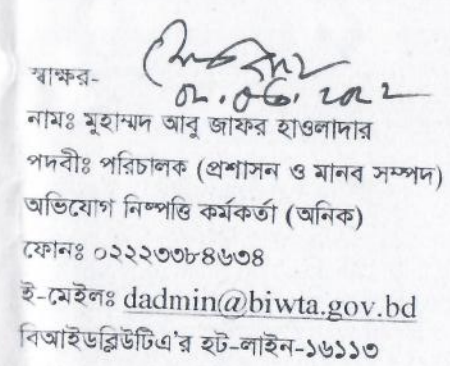 স্বাক্ষর-
নামঃ মুহাম্মদ আবু জাফর হাওলাদার
পদবীঃ পরিচালক (প্রশাসন ও মানব সম্পদ)
অভিযোগ নিষ্পত্তি কর্মকর্তা (অনিক)
ফোনঃ ০২২২৩৩৮৪৬৩৪
ই-মেইলঃ dadmin@biwta.gov.bd
বিআইডব্লিউটিএ'র হট-লাইন-১৬১১৩